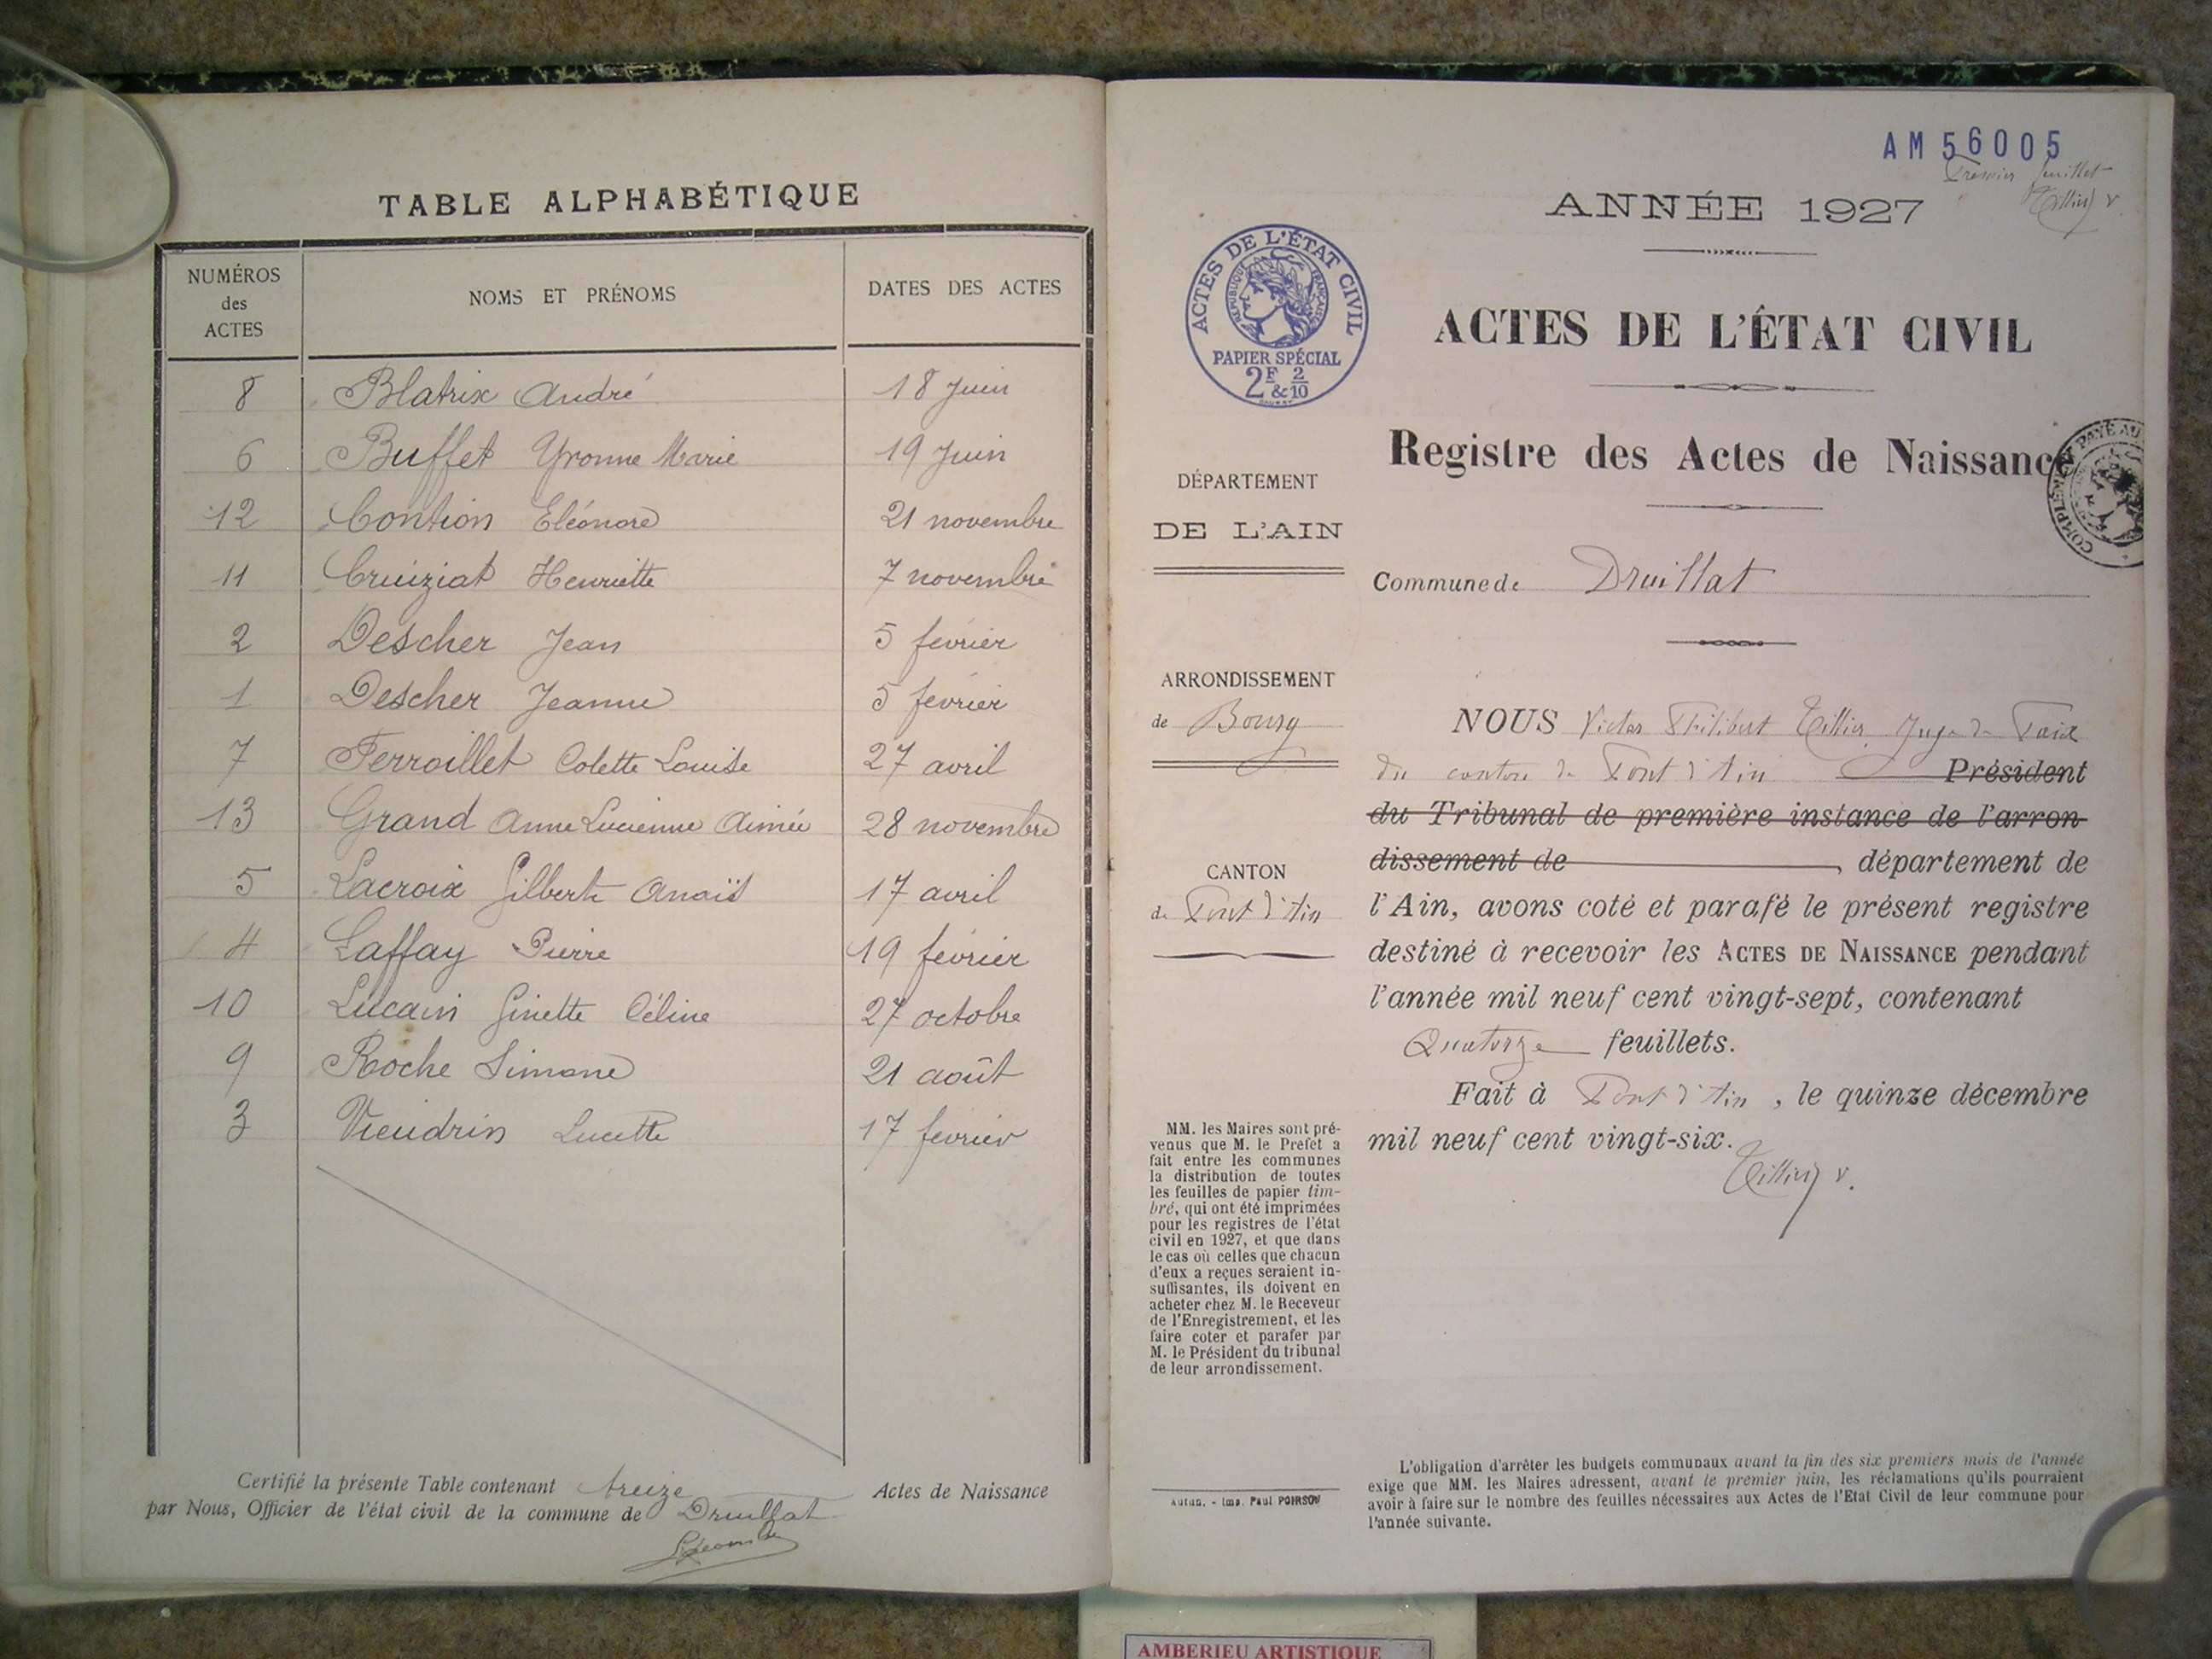 TABLE ALPHABÉTIQUE
NUMÉROS des ACTES NOMS ET PRÉNOMS DATES DES ACTES
8 Blatrix André 18 Juin
6 Buffet Yvonne Marie 19 Juin
12 Contion Eléonore 21 novembre
11 Cruiziat Henriette 7 novembre
2 Descher Jean 5 février
1 Descher Jeanne 5 février
7 Ferroillet Colette Louise 27 avril
13 Grand Anne Lucienne Aimée 28 novembre
5 Lacroix Gilberte Anaïs 17 avril
4 Laffay Pierre 19 février
10 Lucain Ginette Céline 27 octobre
9 Roche Simone 21 août
3 Vieudrin Lucette 17 février
Certifié la présente Table contenant treize Actes de Naissance
par Nous, Officier de l'état civil de la commune de Druillat
AM 56005
Premier feuillet
Tillier V.
ANNÉE 1927
ACTES DE L'ÉTAT CIVIL
RÉPUBLIQUE FRANÇAISE
PAPIER SPÉCIAL
2F & 2/10
ACTES DE L'ÉTAT CIVIL
Registre des Actes de Naissance
PAYÉ AU
DÉPARTEMENT
DE L'AIN
Commune de Druillat
ARRONDISSEMENT
de Bourg
CANTON
de Pont d'Ain
NOUS Victor Philibert Tillier Juge de Paix
du canton de Pont d'Ain Président
du Tribunal de première instance de l'arron-
dissement de , département de
l'Ain, avons coté et parafé le présent registre
destiné à recevoir les ACTES DE NAISSANCE pendant
l'année mil neuf cent vingt-sept, contenant
Quatorze feuillets.
Fait à Pont d'Ain, le quinze décembre
mil neuf cent vingt-six.
Tillier V.
MM. les Maires sont pré-
venus que M. le Préfet a
fait entre les communes
la distribution de toutes
les feuilles de papier tim-
bré, qui ont été imprimées
pour les registres de l'état
civil en 1927, et que dans
le cas où celles que chacun
d'eux a reçues seraient in-
suffisantes, ils doivent en
acheter chez M. le Receveur
de l'Enregistrement, et les
faire coter et parafer par
M. le Président du tribunal
de leur arrondissement.
Autun. - Imp. Paul POIRSON
L'obligation d'arrêter les budgets communaux avant la fin des six premiers mois de l'année
exige que MM. les Maires adressent, avant le premier juin, les réclamations qu'ils pourraient
avoir à faire sur le nombre des feuilles nécessaires aux Actes de l'Etat Civil de leur commune pour
l'année suivante.
AMBERIEU ARTISTIQUE